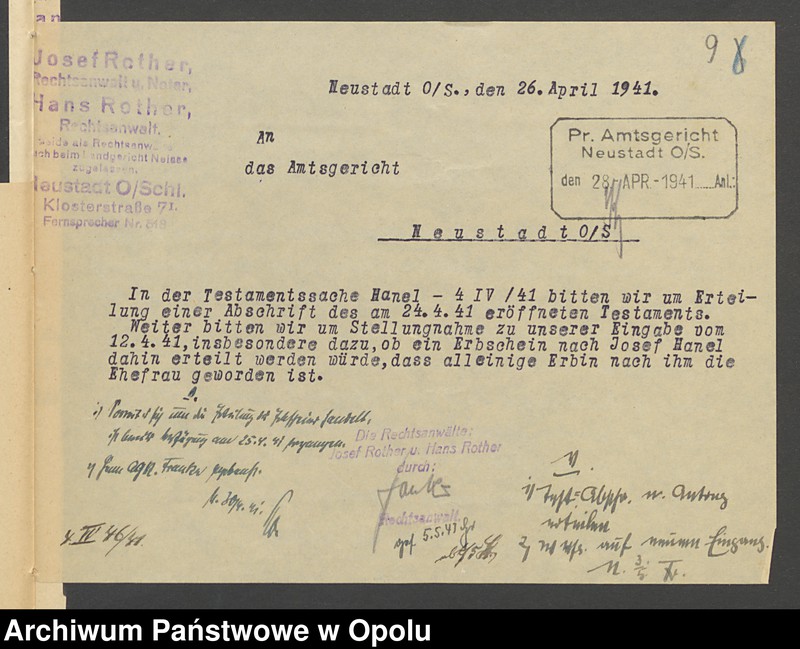 9 8
Josef Rother,
Rechtsanwalt u. Notar,
Hans Rother,
Rechtsanwalt,
beide als Rechtsanwälte
auch beim Landgericht Neisse
zugelassen.
Neustadt O/Schl.
Klosterstraße 71.
Fernsprecher Nr. 518
Neustadt O/S., den 26. April 1941.
An
das Amtsgericht
Pr. Amtsgericht
Neustadt O/S.
den 28. APR. 1941 Anl.:
Neustadt O/S
In der Testamentssache Hanel - 4 IV /41 bitten wir um Ertei-
lung einer Abschrift des am 24.4.41 eröffneten Testaments.
Weiter bitten wir um Stellungnahme zu unserer Eingabe vom
12.4.41, insbesondere dazu, ob ein Erbschein nach Josef Hanel
dahin erteilt werden würde, dass alleinige Erbin nach ihm die
Ehefrau geworden ist.
V.
1) um die Erteilung des Erbscheins handelt,
ist Verfügung am 25.4.41 ergangen.
2) Herrn Franke
4 IV 46/41
Die Rechtsanwälte:
Josef Rother u. Hans Rother
durch:
Rechtsanwalt.
gef. 5.5.41
V.
1) Test=Abschr. w. Antrag
erteilen
2) W vfg. auf neuen Eingang.
N. 3/5
Archiwum Państwowe w Opolu